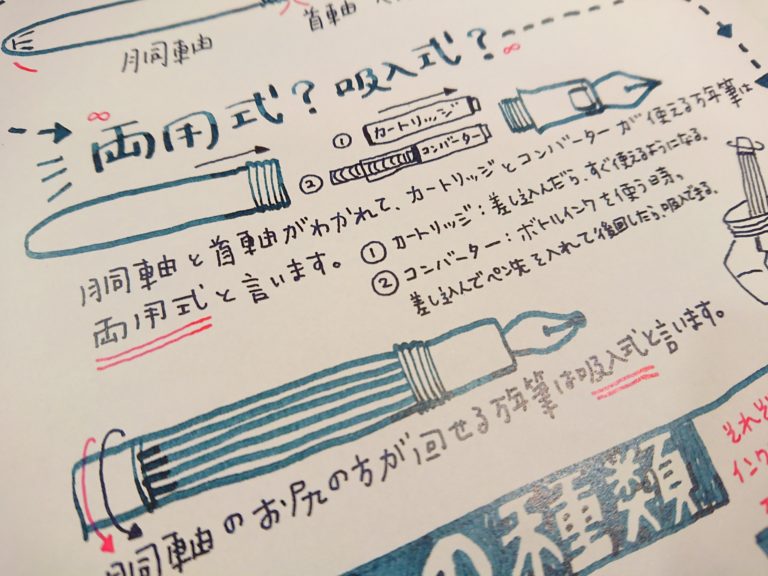 胴軸
首軸
両用式?吸入式?
① カートリッジ
② コンバーター
胴軸と首軸がわかれて、カートリッジとコンバーターが使える万年筆は
両用式と言います。
① カートリッジ:差し込んだら、すぐ使えるようになる。
② コンバーター:ボトルインクを使う時。
差し込んでペン先を入れて後回したら、吸入できる。
胴軸のお尻の方が回せる万年筆は吸入式と言います。
の種類
それぞ
インク